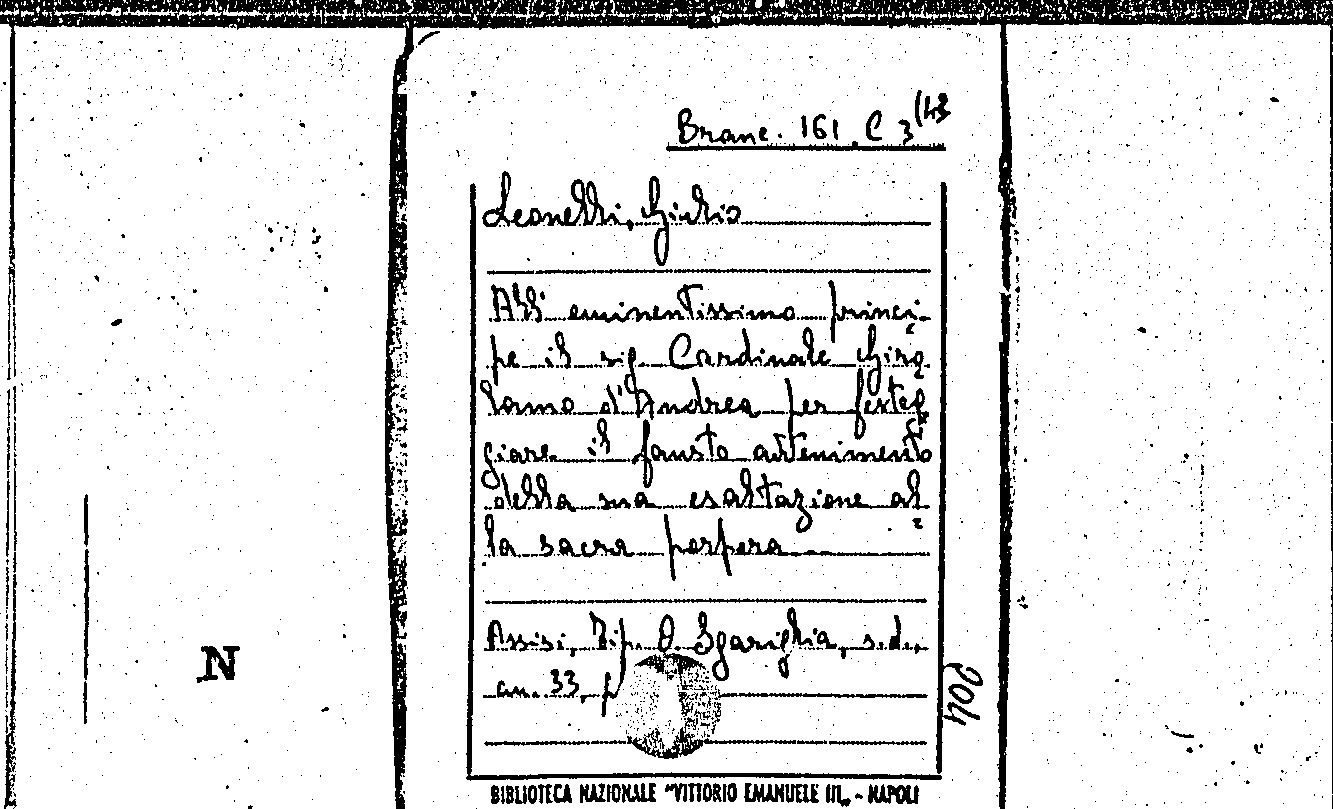 Branc. 161. C 3(43
Leonelli, Giulio
All' eminentissimo princi-
pe il sig. Cardinale Giro
lamo d'Andrea per festeg
giare il fausto avvenimento
della sua esaltazione al
la sacra porpora
Assisi, Tip. O. Sgariglia, s.d.,
cm. 33, p
904
N
BIBLIOTECA NAZIONALE "VITTORIO EMANUELE III„ - NAPOLI